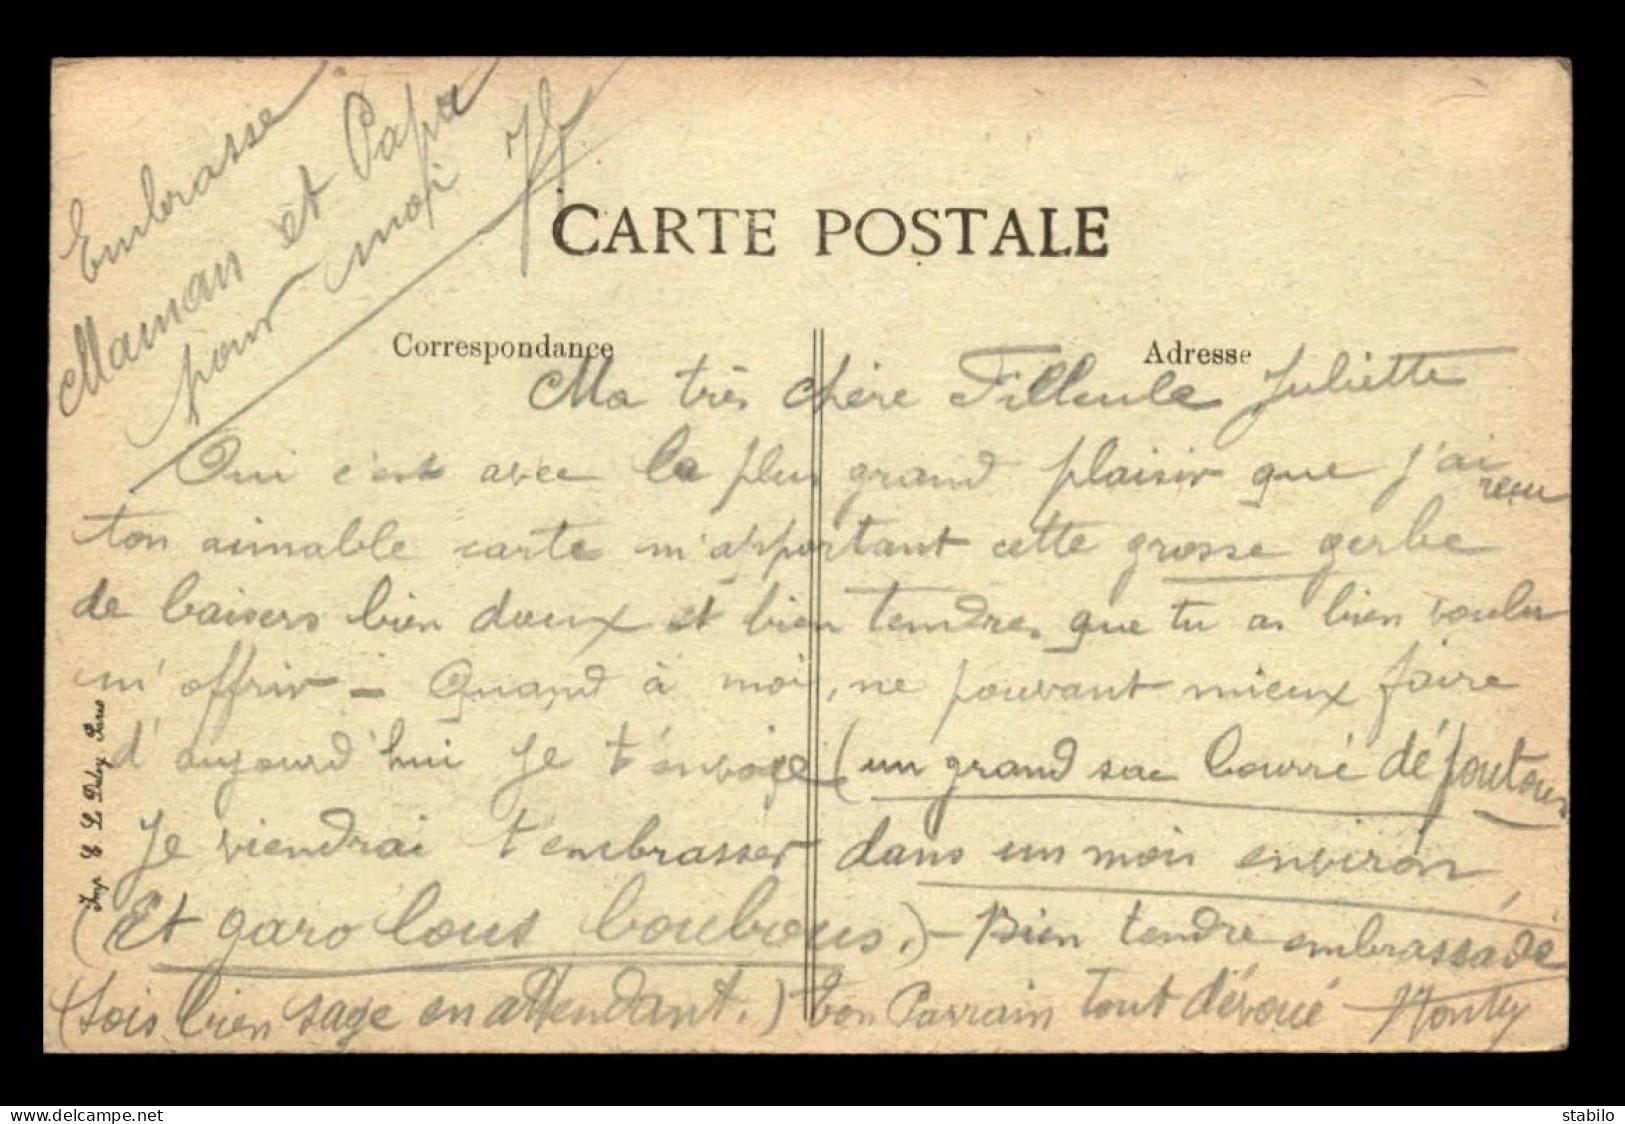 Embrasse
Maman et Papa
pour moi
CARTE POSTALE
Correspondance
Adresse
Ma très chère Filleule Juliette
Oui c'est avec le plus grand plaisir que j'ai reçu
ton aimable carte m'apportant cette grosse gerbe
de baisers bien doux et bien tendres que tu as bien voulu
m'offrir - Quand à moi, ne pouvant mieux faire
d'aujourd'hui je t'envoie (un grand sac bourré dé poutous
Je viendrai t'embrasser dans un mois environ
(Et garo lous boubous.) - Bien tendre embrassade
(Sois bien sage en attendant.) ton Parrain tout dévoué
Imp. E. Le Deley Paris
stabilo